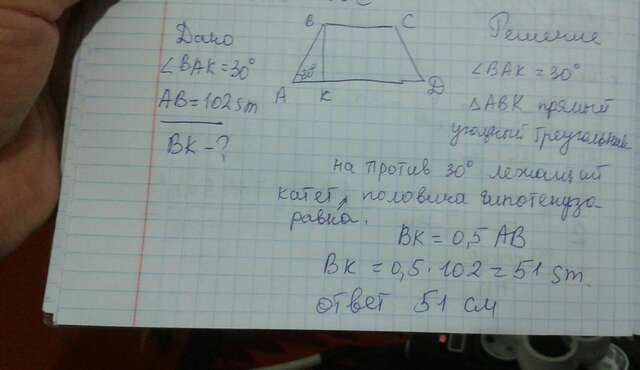 Дано
∠BAK=30°
AB=102sm
BK-?
B C
30°
A K D
Решение
∠BAK=30°
△ABK прямый
угольный треугольник
на против 30° лежащий
катет, половина гипотенуза
равна.
BK=0,5 AB
BK=0,5·102=51 sm.
ответ 51 см